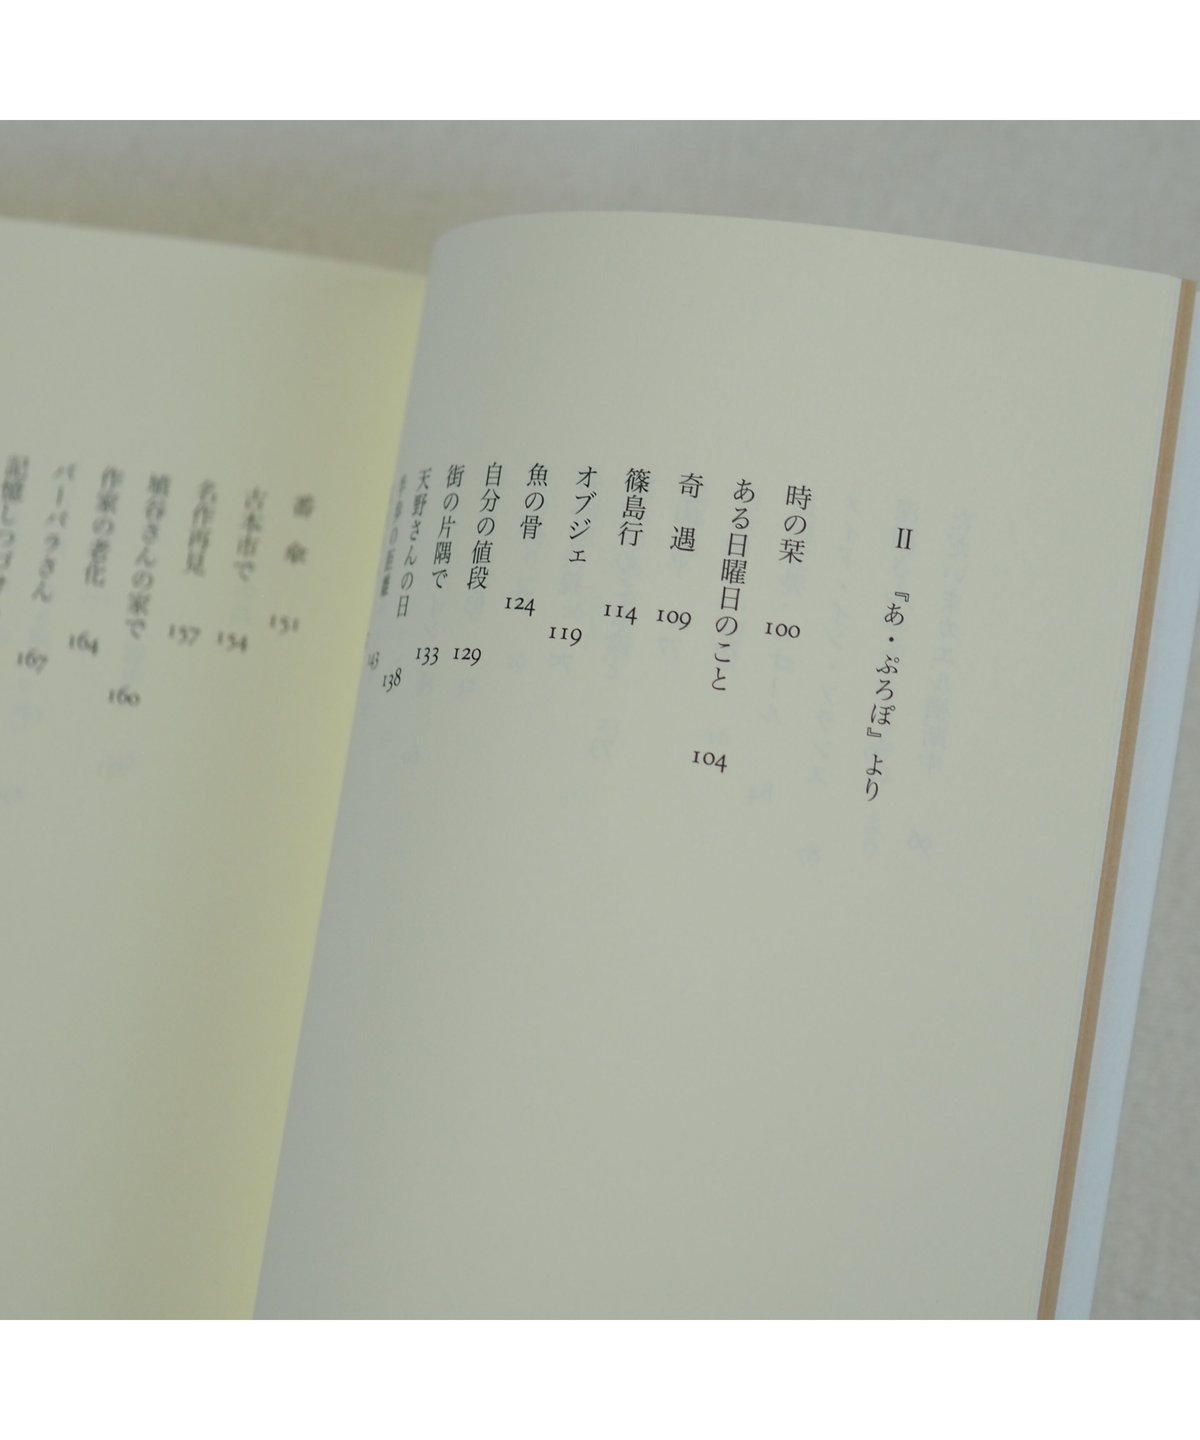 II 『あ・ぷろぽ』より
時の栞 100
ある日曜日のこと 104
奇遇 109
篠島行 114
オブジェ 119
魚の骨 124
自分の値段 129
街の片隅で 133
天野さんの日 138
半歩の距離 143
番傘 151
古本市で 154
名作再見 157
埴谷さんの家で 160
作家の老化 164
バーバラさん 167